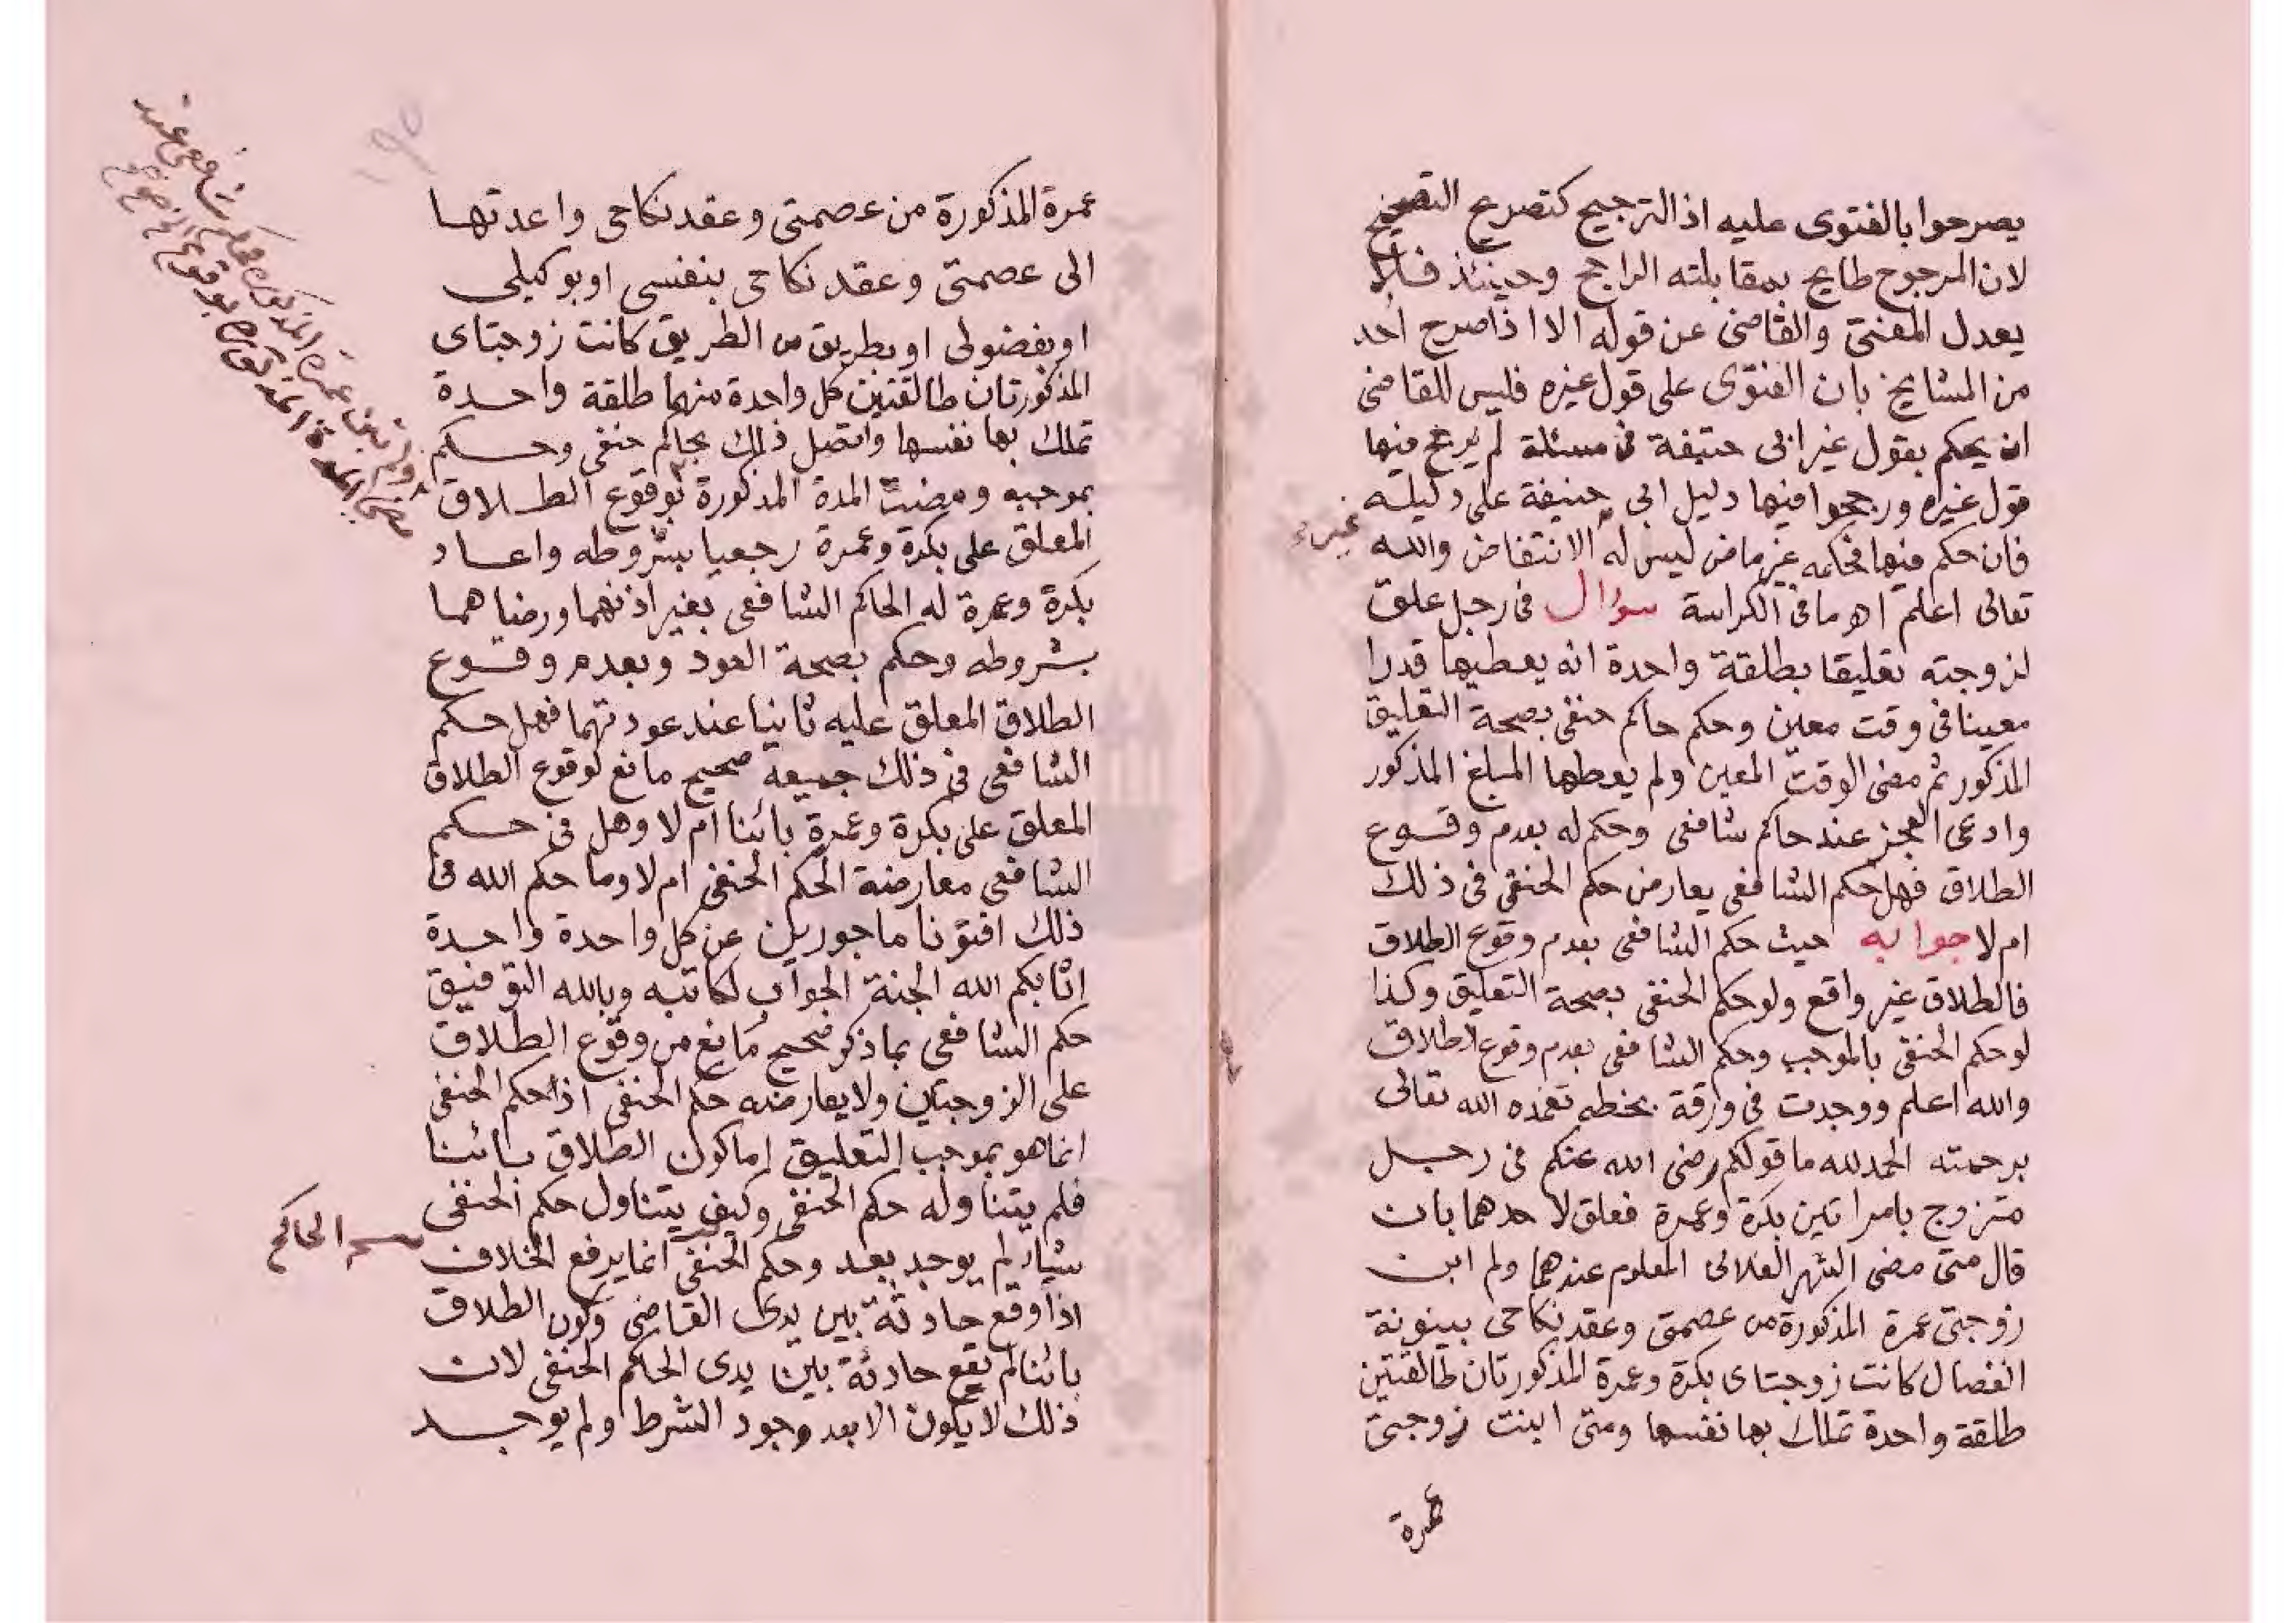 يصرحوا بالفتوى عليه اذ الترجيح كتصريح التصحيح
لان المرجوح طايح بمقابلته الراجح وحينئذ فلا
يعدل المفتى والقاضى عن قوله الا اذا صرح احد
من المشايخ بان الفتوى على قول غيره فليس للقاضى
ان يحكم بقول غير ابى حنيفة فى مسئلة لم يرجح فيها
قول غيره ورجحوا فيها دليل ابى حنيفة على دليله
غيره
فان حكم فيها فحكمه غير ماض ليس له الا الانتقاض والله
تعالى اعلم اهـ ما فى الكراسة سؤال فى رجل علق
لزوجته تعليقا بطلقة واحدة انه يعطيها قدرا
معينا فى وقت معين وحكم حاكم حنفى بصحة التعليق
المذكور ثم مضى الوقت المعين ولم يعطها المبلغ المذكور
وادعى العجز عند حاكم شافعى وحكم له بعدم وقوع
الطلاق فهل حكم الشافعى يعارض حكم الحنفى فى ذلك
ام لا جوابه حيث حكم الشافعى بعدم وقوع الطلاق
فالطلاق غير واقع ولو حكم الحنفى بصحة التعليق وكذا
لو حكم الحنفى بالموجب وحكم الشافعى بعدم وقوع الطلاق
والله اعلم ووجدت فى ورقة بخطه تغمده الله تعالى
برحمته الحمد لله ما قولكم رضى الله عنكم فى رجل
متزوج بامراتين بكرة وعمرة فعلق لاحدهما بان
قال متى مضى الشهر الفلانى المعلوم عندهما ولم ابن
زوجتى عمرة المذكورة من عصمتى وعقد نكاحى بينونة
انفصال كانت زوجتاى بكرة وعمرة المذكورتان طالقتين
طلقة واحدة تملك بها نفسها ومتى ابنت زوجتى
عمرة
١٩٥
عمرة المذكورة من عصمتى وعقد نكاحى واعدتها
الى عصمتى وعقد نكاحى بنفسى او بوكيلى
او بفضولى او بطريق من الطريق كانت زوجتاى
المذكورتان طالقتين كل واحدة منهما طلقة واحدة
تملك بها نفسها واتصل ذلك بحاكم حنفى وحكم
بموجبه ومضت المدة المذكورة بوقوع الطلاق
المعلق على بكرة وعمرة رجعيا بشروطه واعاد
بكرة وعمرة له الحاكم الشافعى بغير اذنهما ورضاهما
بشروطه وحكم بصحة العود وبعدم وقوع
الطلاق المعلق عليه ثانيا عند عودتهما فهل حكم
الشافعى فى ذلك جميعه صحيح مانع لوقوع الطلاق
المعلق على بكرة وعمرة بائنا ام لا وهل فى حكم
الشافعى معارضة الحكم الحنفى ام لا وما حكم الله فى
ذلك افتونا ماجورين عن كل واحدة واحدة
اثابكم الله الجنة الجواب لكاتبه وبالله التوفيق
حكم الشافعى بما ذكر صحيح مانع من وقوع الطلاق
على الزوجتين ولا يعارضه حكم الحنفى اذ حكم الحنفى
انما هو بموجب التعليق اما كون الطلاق بائنا
فلم يتناوله حكم الحنفى وكيف يتناول حكم الحنفى
شيا لم يوجد بعد وحكم الحنفى انما يرفع الخلاف
الحاكم
اذا وقع حادثة بين يدى القاضى وكون الطلاق
بائنا لم يقع حادثة بين يدى الحاكم الحنفى لان
ذلك لا يكون الا بعد وجود الشرط ولم يوجد